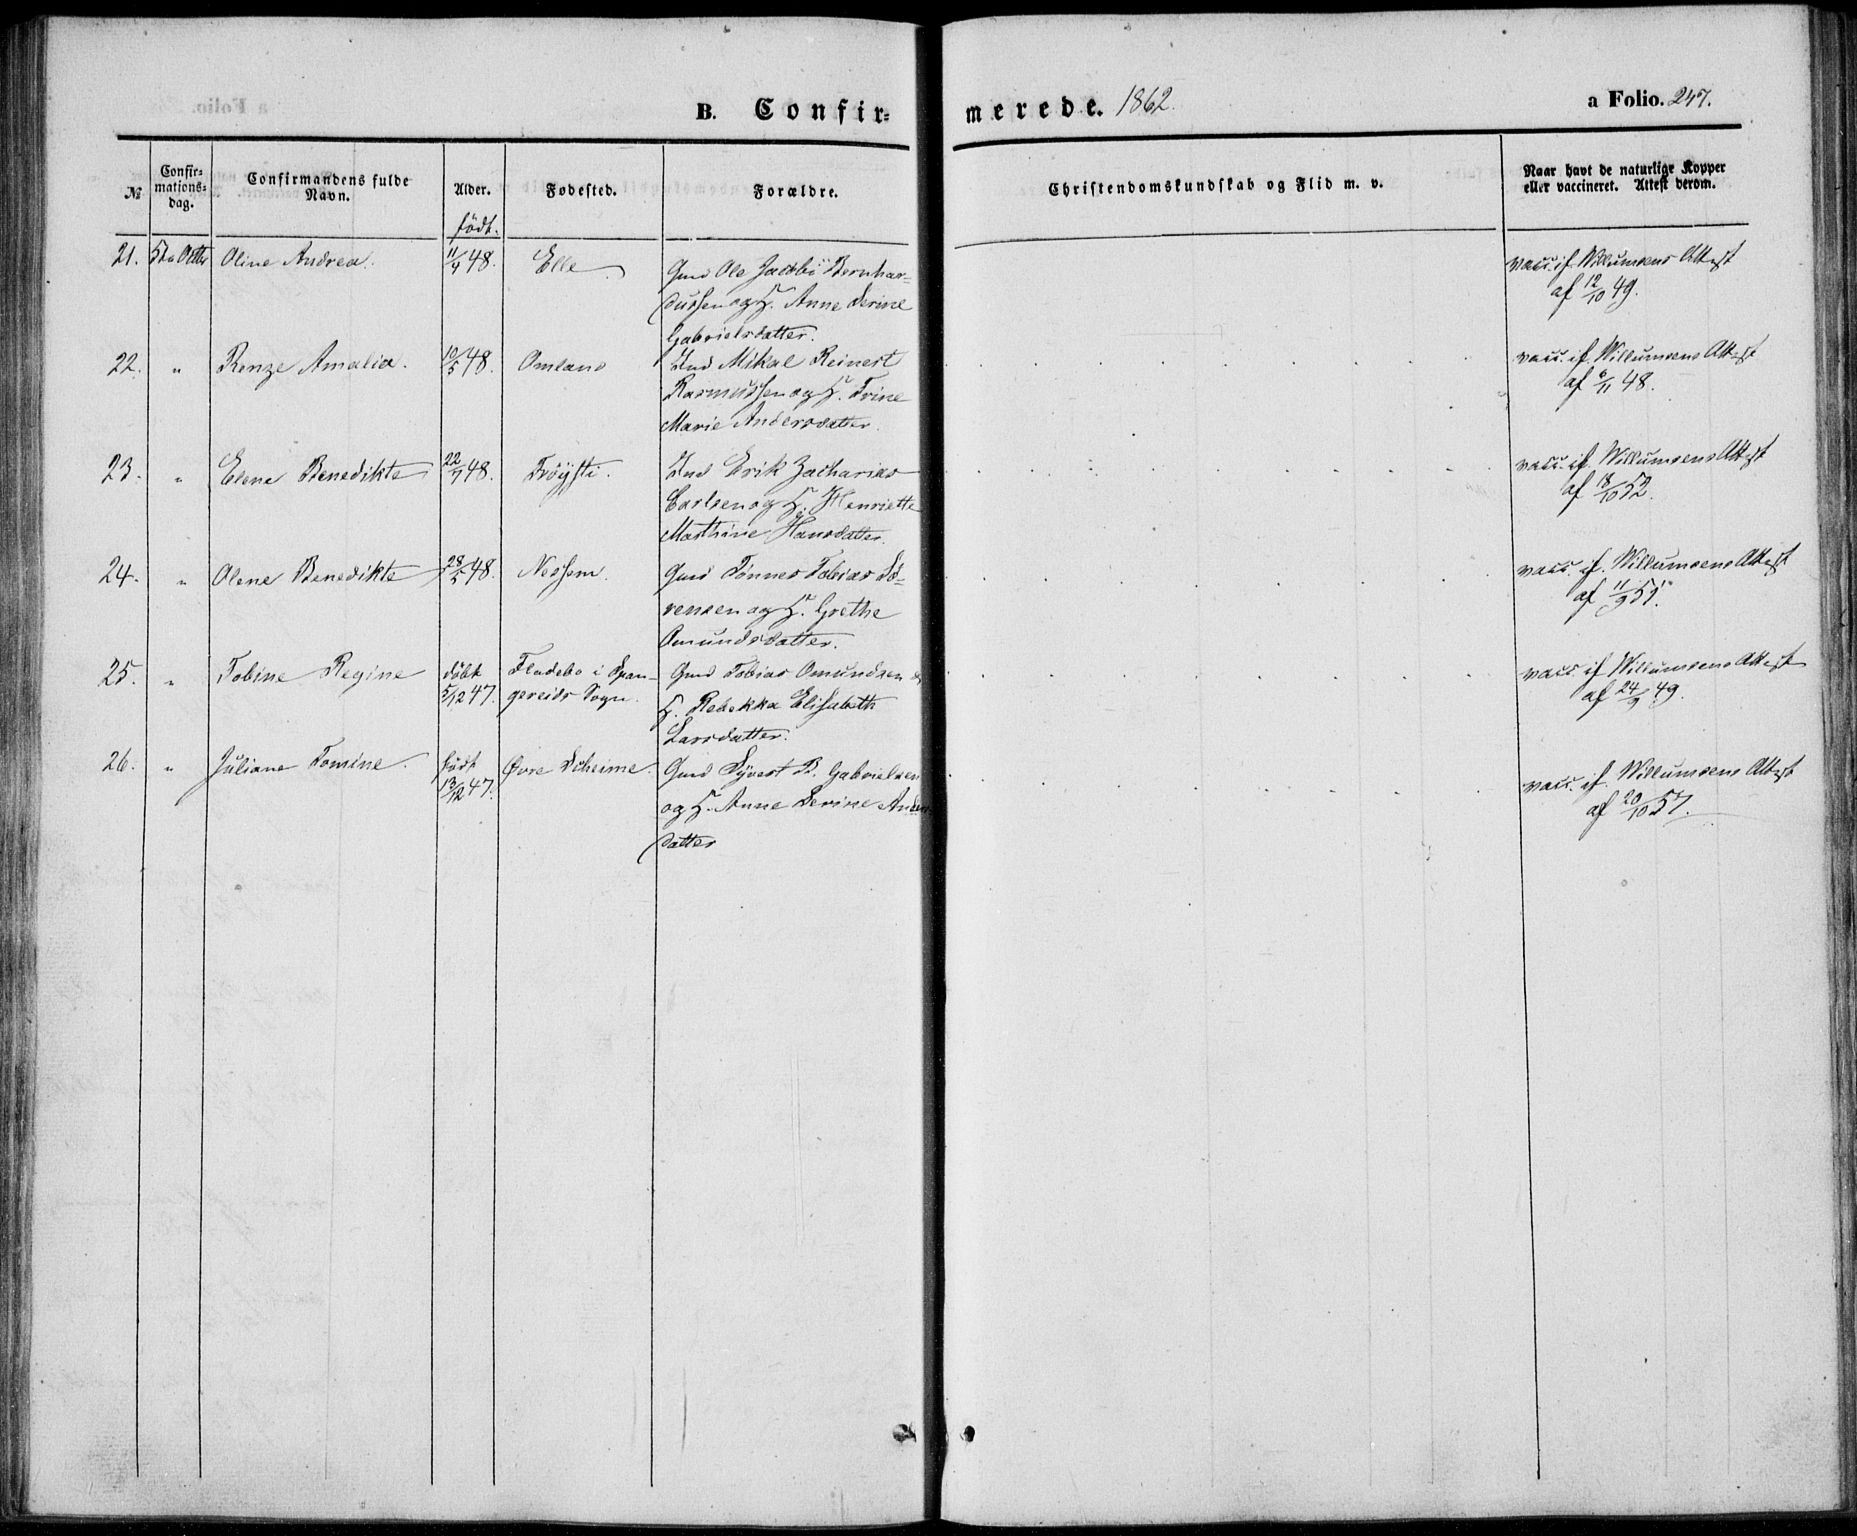 B. Confir-
merede. 1862.
a Folio. 247.
№
Confir-
mations-
dag.
Confirmandens fulde
Navn.
Alder.
Fødested.
Forældre.
Christendomskundskab og Flid m. v.
Naar havt de naturlige Kopper
eller vaccineret. Attest derom.
født.
21. 5te Octbr Oline Andrea. 11/9 48. Elle. Gmd Ole Jacobs Bernhar-
dussen og H. Anne Serine
Gabrielsdatter.
vacc. if. Willumsens Attest
af 12/10 49.
22. " Renze Amalia. 10/5 48. Omland Ind Mikal Reinert
Rasmussen og H. Trine
Marie Andersdatter.
vacc. if. Willumsens Attest
af 6/11 48.
23. " Elene Benedikte 22/9 48. Frøysti. Ind Erik Zacharias
Carlsen og H. Henriette
Marthine Hansdatter.
vacc. if. Willumsens Attest
af 18/10 52.
24. " Olene Benedikte 28/5 48. Nessem. Gmd Tønnes Tobias Sø-
rensen og H. Grethe
Omundsdatter.
vacc. if. Willumsens Attest
af 11/9 51.
25. " Tobine Regine døbt Fladebo i Span- Gmd Tobias Omundsen &
5/12 47. gereids Sogn. H. Rebekka Elisabeth
Larsdatter.
vacc. if Willumsens Attest
af 24/9 49.
26. " Juliane Tomine. født Øvre Scheime. Gmd Syvert B. Gabrielsen
13/12 47. og H. Anne Serine Anders
datter
vacc. if. Willumsens Attest
af 20/10 57.